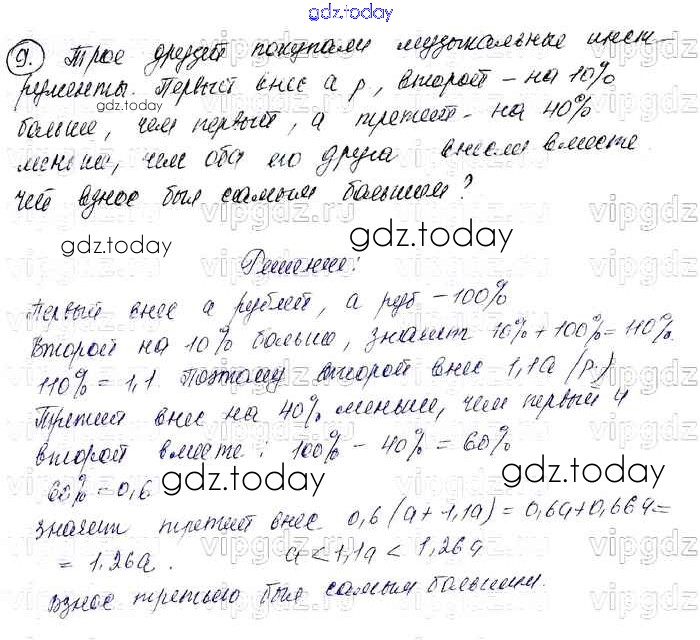 gdz.today
9. Трое друзей покупали музыкальные инст-
рументы. Первый внес а р, второй - на 10%
больше, чем первый, а третий - на 40%
меньше, чем оба его друга внесли вместе.
Чей взнос был самым большим?
gdz.today
gdz.today
Решение:
Первый внес а рублей, а руб - 100%
Второй на 10% больше, значит 10% + 100% = 110%.
110% = 1,1. Поэтому второй внес 1,1а (р.)
Третий внес на 40% меньше, чем первый и
второй вместе: 100% - 40% = 60%
60% = 0,6
gdz.today
gdz.today
значит третий внес 0,6(а + 1,1а) = 0,6а + 0,66а =
= 1,26а. а < 1,1а < 1,26а
взнос третьего был самым большим.
gdz.today
vipgdz.ru